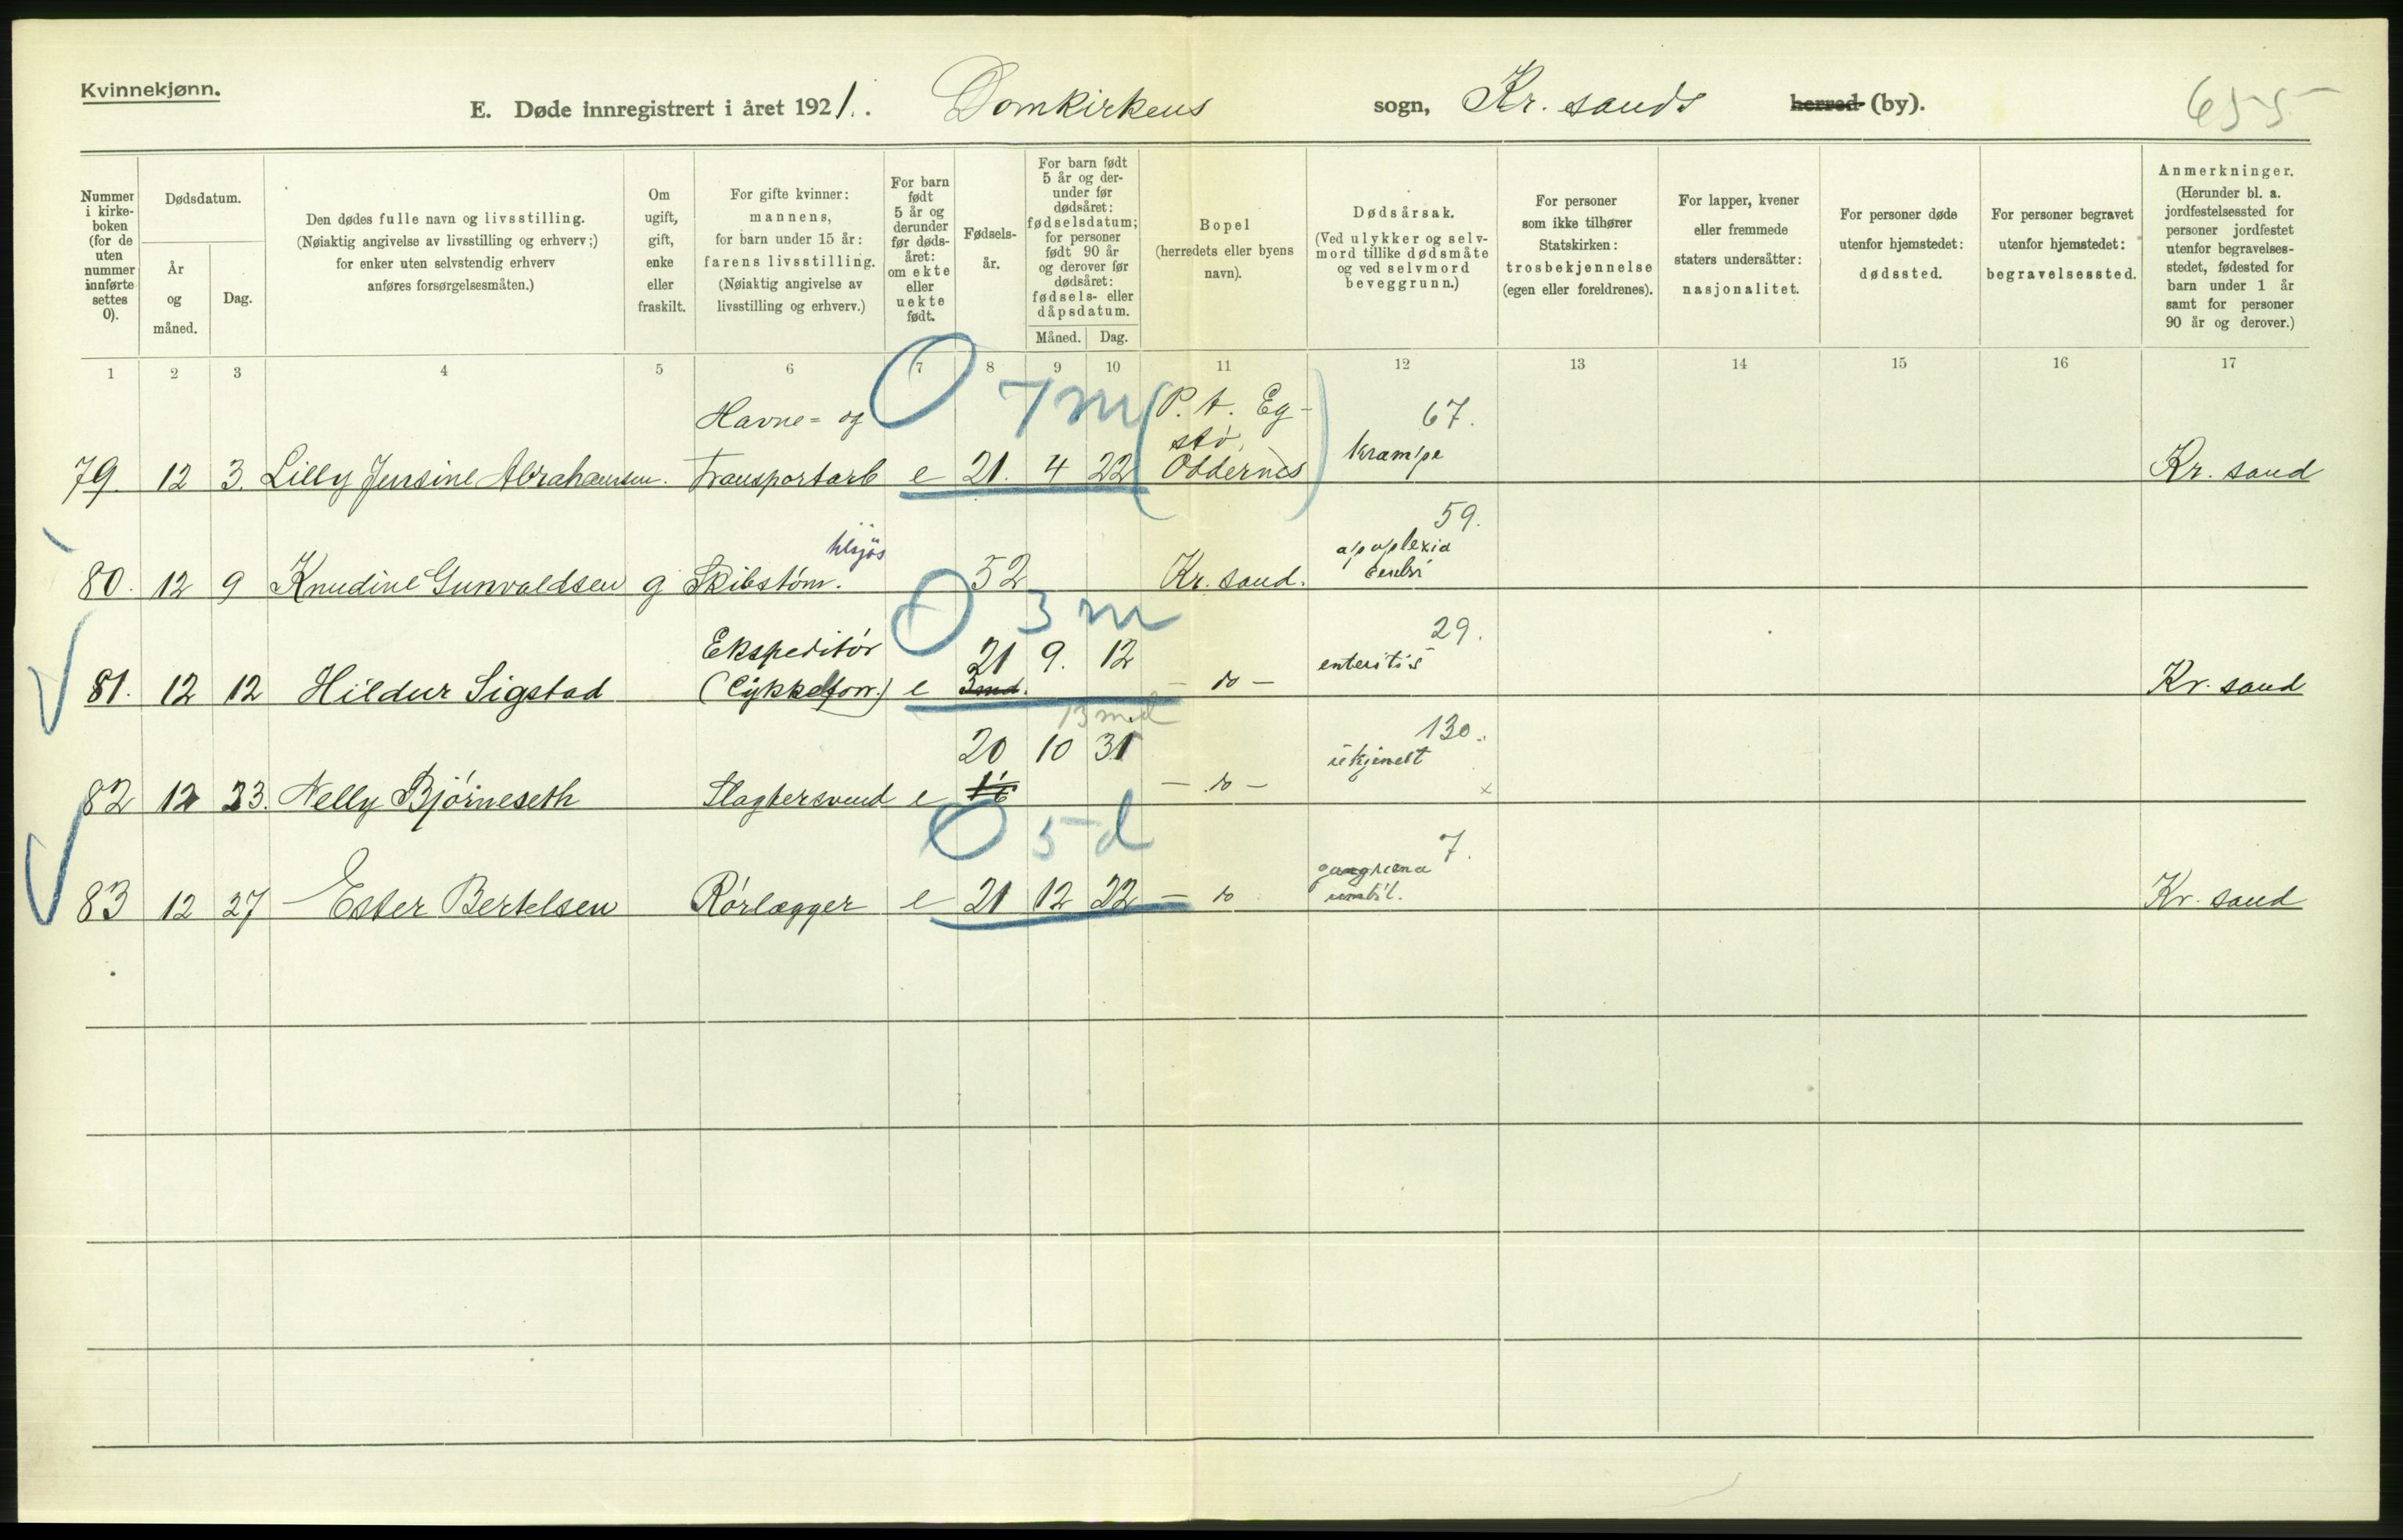 Kvinnekjønn.
E. Døde innregistrert i året 1921. Domkirkens sogn, Kr. sands herred (by).
655
Nummer i kirke-boken (for de uten nummer innførte settes 0).
Dødsdatum.
År og måned.
Dag.
Den dødes fulle navn og livsstilling.
(Nøiaktig angivelse av livsstilling og erhverv;)
for enker uten selvstendig erhverv
anføres forsørgelsesmåten.)
Om ugift, gift, enke eller fraskilt.
For gifte kvinner:
mannens,
for barn under 15 år:
farens livsstilling.
(Nøiaktig angivelse av
livsstilling og erhverv.)
For barn født 5 år og derunder før døds-året: om ekte eller uekte født.
Fødsels-år.
For barn født 5 år og der-under før dødsåret: fødselsdatum; for personer født 90 år og derover før dødsåret: fødsels- eller dåpsdatum.
Måned. Dag.
Bopel
(herredets eller byens navn).
Dødsårsak.
(Ved ulykker og selv-mord tillike dødsmåte og ved selvmord beveggrunn.)
For personer
som ikke tilhører
Statskirken:
trosbekjennelse
(egen eller foreldrenes).
For lapper, kvener
eller fremmede
staters undersåtter:
nasjonalitet.
For personer døde
utenfor hjemstedet:
dødssted.
For personer begravet
utenfor hjemstedet:
begravelsessted.
Anmerkninger.
(Herunder bl. a. jordfestelsessted for personer jordfestet utenfor begravelses-stedet, fødested for barn under 1 år samt for personer 90 år og derover.)
1 2 3 4 5 6 7 8 9 10 11 12 13 14 15 16 17
Havne- og 7 m P. t. Eg- 67.
stø,
79. 12 3. Lilly Jensine Abrahamsen. Transportarb e 21. 4 22 Oddernes krampe Kr. sand
59.
80. 12 9 Knudine Gunvaldsen g Skibstøm. 52 Kr. sand. apoplexia
3 m
Ekspeditør 21 9. 12 29.
81. 12 12 Hildur Sigstad (Cykkelforr.) e 3 md. - do - enteritis Kr. sand
13 md
20 10 31 130.
82 12 23. Nelly Bjørneseth Slagtersvend e - do - ukjendt x
5 d
7.
83 12 27 Ester Bertelsen Rørlægger e 21 12 22 - do gangræna Kr. sand
umbil.